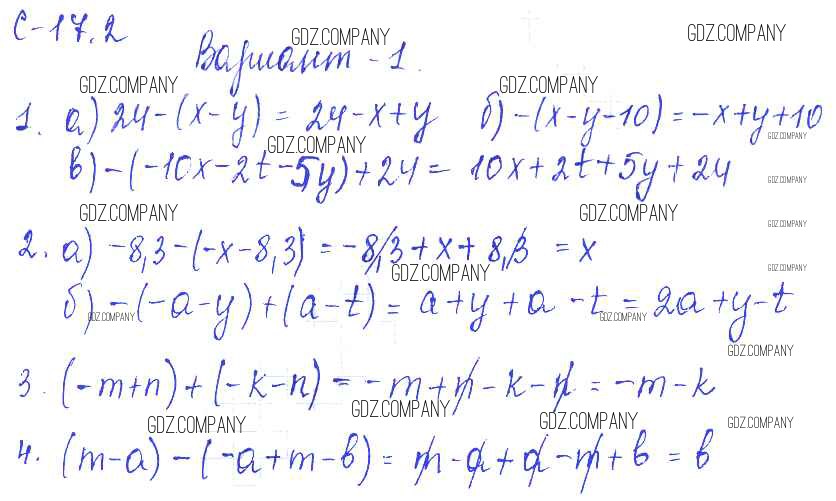 С-17.2
GDZ.COMPANY GDZ.COMPANY
Вариант - 1.
GDZ.COMPANY GDZ.COMPANY
1. а) 24-(x-y) = 24-x+y б) -(x-y-10) = -x+y+10
GDZ.COMPANY GDZ.COMPANY
в) -(-10x-2t-5y)+24 = 10x+2t+5y+24
GDZ.COMPANY
GDZ.COMPANY GDZ.COMPANY GDZ.COMPANY
2. а) -8,3-(-x-8,3) = -8,3+x+8,3 = x
GDZ.COMPANY GDZ.COMPANY
б) -(-a-y)+(a-t) = a+y+a-t = 2a+y-t
GDZ.COMPANY GDZ.COMPANY
GDZ.COMPANY
3. (-m+n)+(-k-n) = -m+n-k-n = -m-k
GDZ.COMPANY GDZ.COMPANY GDZ.COMPANY GDZ.COMPANY
4. (m-a)-(-a+m-b) = m-a+a-m+b = b